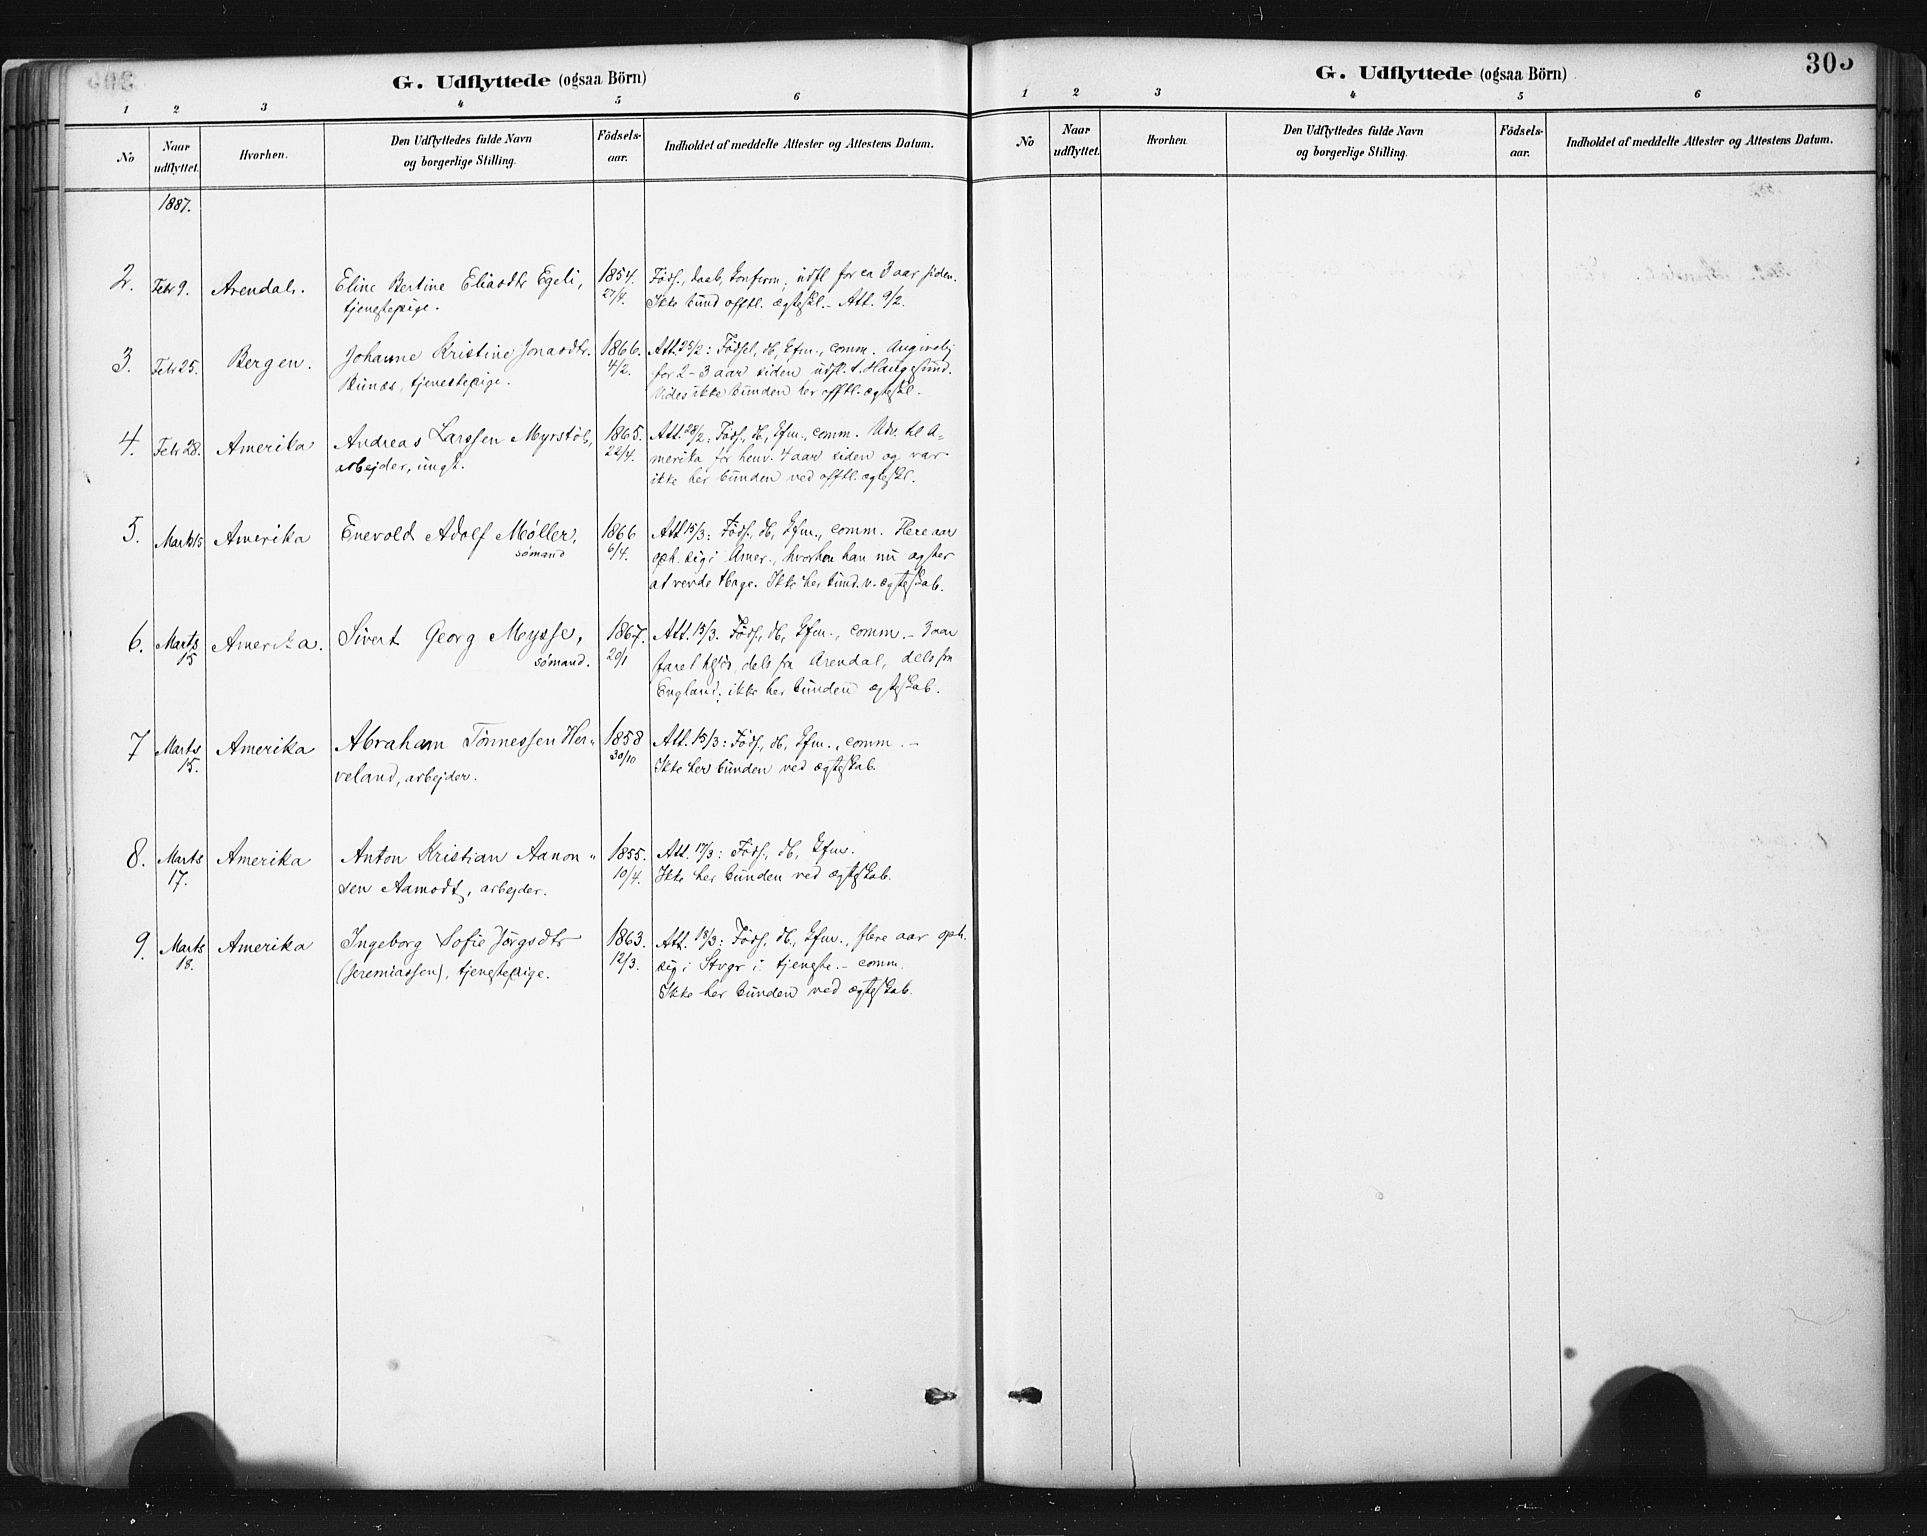 G. Udflyttede (ogsaa Börn)
1 2 3 4 5 6
No
Naar udflyttet.
Hvorhen.
Den Udflyttedes fulde Navn
og borgerlige Stilling.
Födsels-
aar.
Indholdet af meddelte Attester og Attestens Datum.
1887.
2. Febr 9. Arendal. Eline Bertine Eliasdtr Egeli, 1854. Föds., daab, konfirm; udfl for ca 3 aar siden.
tjenestepige. 27/4. Ikke bund offtl. ægteskl. - Att. 9/2.
3. Febr 25. Bergen. Johanne Kristine Jonasdtr. 1866. Att. 25/2: Födsel, db, kfm., comm. Angivelig
Bunes, tjenestepige. 4/2. for 2-3 aar siden udfl. t. Haugesund.
Vides ikke bunden her offtl. ægteskl.
4. Febr 28. Amerika Andreas Larssen Myrstøl, 1865. Att. 28/2: Föds., db, kfm., comm. Udv. til A-
arbejder, ungk. 22/4. merika for henv. 4 aar siden og var
ikke her bunden ved offtl. ægteskl.
5. Marts 15 Amerika Enevold Adolf Møller, 1866 Att 15/3: Föds, db, kfm., comm. Flere aar
sømand 6/4. oph. sig i Amer., hvorhen han nu agter
at vende tbage. Ikke her bund. v. ægteskab.
6. Marts 15 Amerika. Sivert Georg Meysse, 1867. Att. 15/3. Föds, db, kfm., comm. - 3 aar
sømand. 20/1 faret tilsøs, dels fra Arendal, dels fra
England; ikke her bunden ægteskab.
7 Marts 15. Amerika Abraham Tönnessen Her- 1858 Att. 15/3: Föds, db, kfm., comm. -
veland, arbejder. 30/10 Ikke her bunden ved ægteskab.
8. Marts 17. Amerika Anton Kristian Aanon- 1855. Att. 17/3: Föds, db, kfm.
sen Aamodt, arbejder. 10/4. Ikke her bunden ved ægteskab.
9. Marts 18. Amerika Ingeborg Sofie Jørgsdtr 1863. Att. 18/3: Föds, db., kfm., flere aar oph.
(Jeremiassen), tjenestepige. 12/3. sig i Stvgr i tjeneste. - comm.
Ikke her bunden ved ægteskab.
G. Udflyttede (ogsaa Börn)
305
1 2 3 4 5 6
No
Naar
udflyttet.
Hvorhen.
Den Udflyttedes fulde Navn
og borgerlige Stilling.
Födsels-
aar.
Indholdet af meddelte Attester og Attestens Datum.